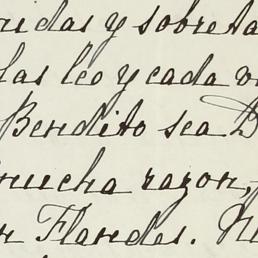 idas y sobre
las leo y cada
Bendito sea D
mucha razon,
n Flandes.